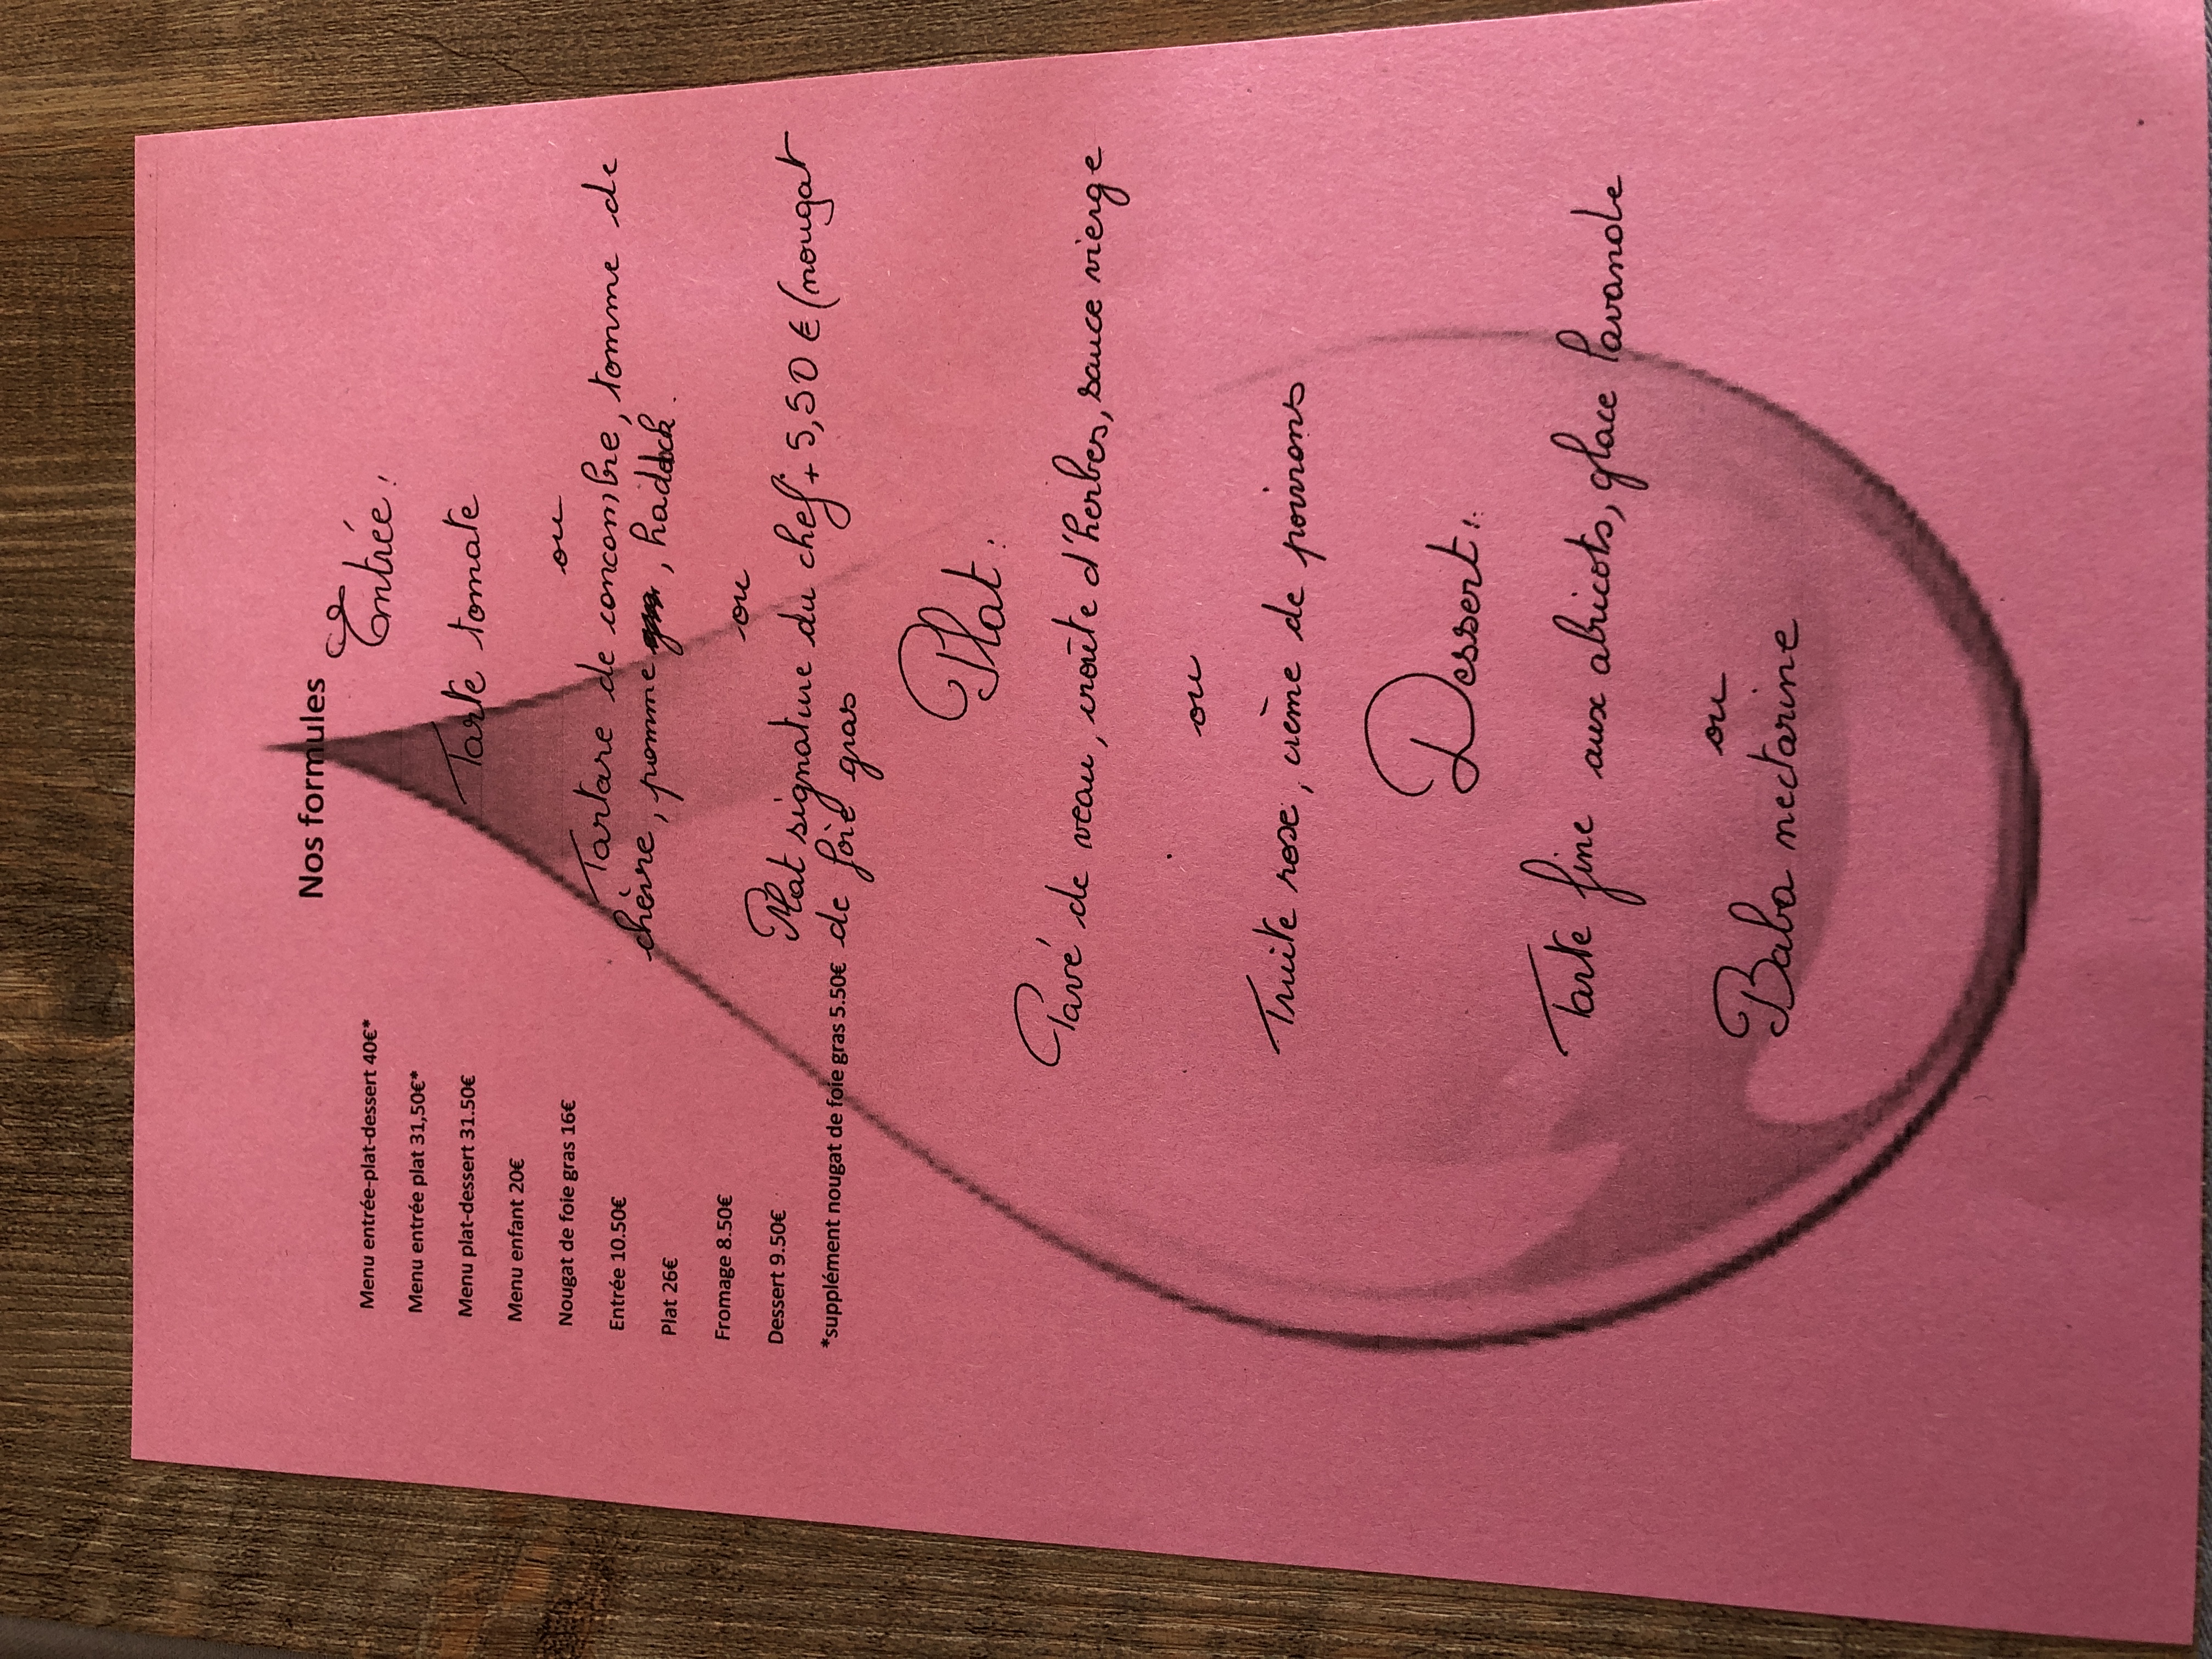 Nos formules
Menu entrée-plat-dessert 40€*
Menu entrée plat 31,50€*
Menu plat-dessert 31.50€
Menu enfant 20€
Nougat de foie gras 16€
Entrée 10.50€
Plat 26€
Fromage 8.50€
Dessert 9.50€
*supplément nougat de foie gras 5.50€
Entrée :
Tarte tomate
ou
Tartare de concombre, tomme de
chèvre, pomme, haddock.
ou
Plat signature du chef + 5,50 € (nougat
de foie gras
Plat :
Pavé de veau, croûte d'herbes, sauce vierge
ou
Truite rose, crème de poivrons
Dessert :
Tarte fine aux abricots, glace lavande
ou
Baba nectarine